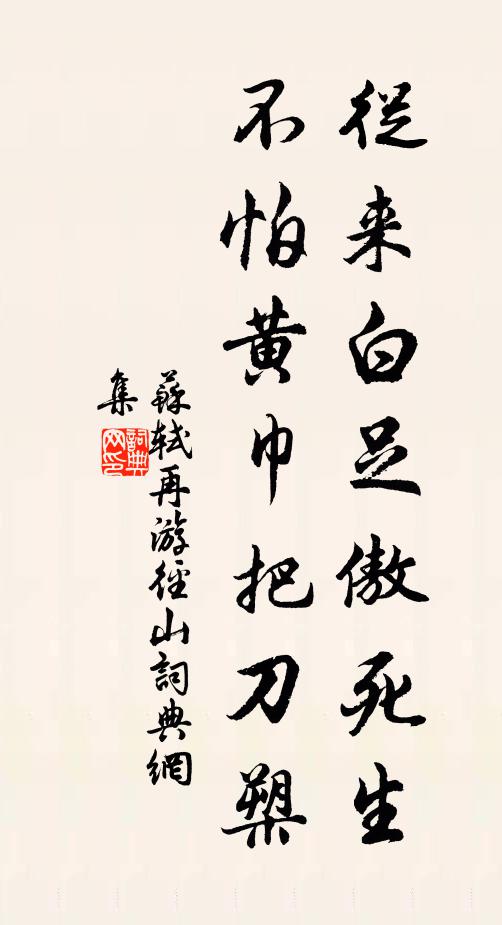 從来白足傲死生
不怕黄巾把刀槊
蘇軾再游徑山詞典網
集
詞典
网印